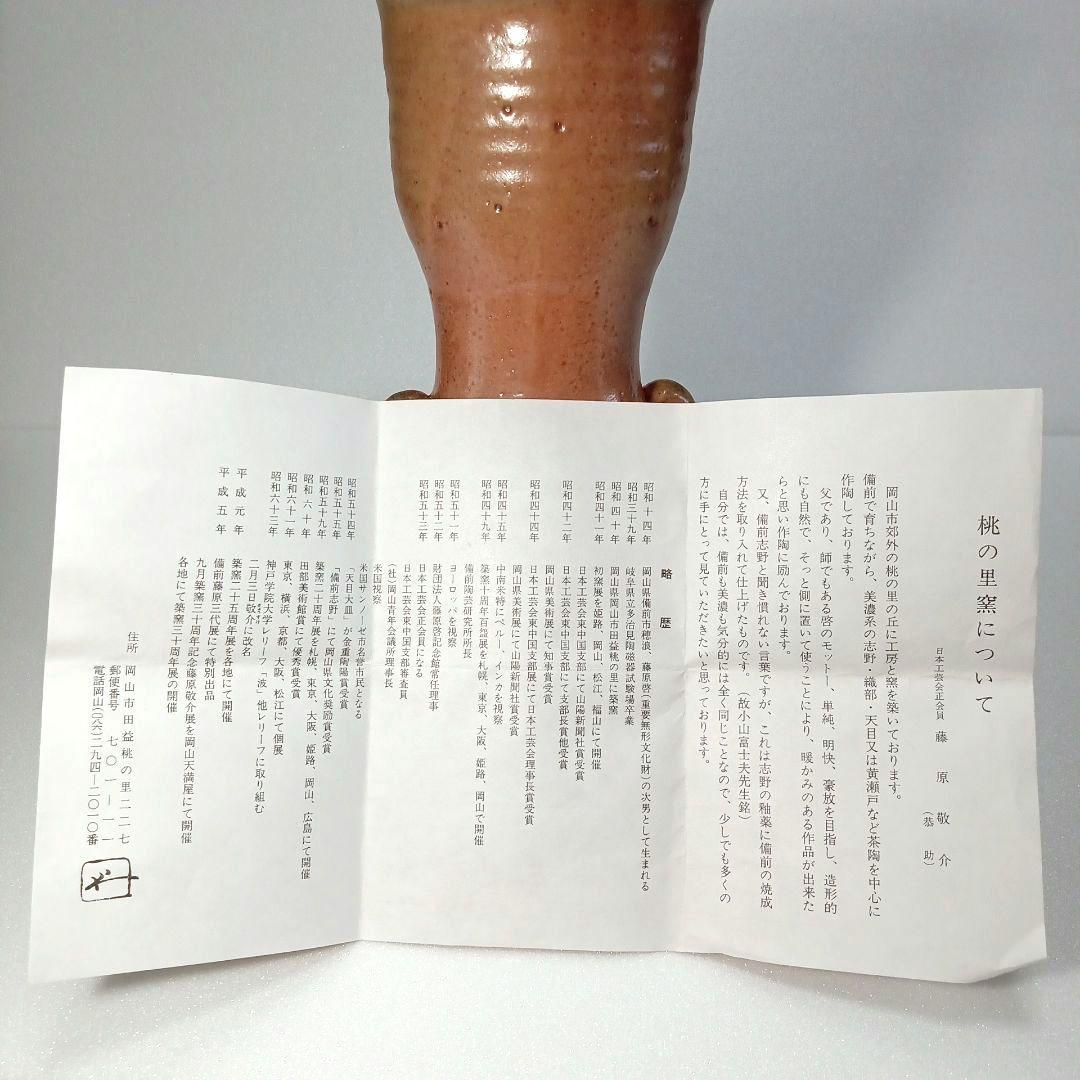 桃の里窯について
日本工芸会正会員 藤原敬介
(恭助)
岡山市郊外の桃の里の丘に工房と窯を築いております。
備前で育ちながら、美濃系の志野・織部・天目又は黄瀬戸など茶陶を中心に
作陶しております。
父であり、師でもある啓のモットー、単純、明快、豪放を目指し、造形的
にも自然で、そっと側に置いて使うことにより、暖かみのある作品が出来た
らと思い作陶に励んでおります。
又、備前志野と聞き慣れない言葉ですが、これは志野の釉薬に備前の焼成
方法を取り入れて仕上げたものです。(故小山富士夫先生銘)
自分では、備前も美濃も気分的には全く同じことなので、少しでも多くの
方に手にとって見ていただきたいと思っております。
略歴
昭和十四年 岡山県備前市穂浪、藤原啓(重要無形文化財)の次男として生まれる
昭和三十九年 岐阜県立多治見陶磁器試験場卒業
昭和四十年 岡山県岡山市田益桃の里に築窯
昭和四十一年 初窯展を姫路、岡山、松江、福山にて開催
日本工芸会東中国支部にて山陽新聞社賞受賞
昭和四十二年 日本工芸会東中国支部にて支部長賞他受賞
岡山県美術展にて知事賞受賞
昭和四十四年 日本工芸会東中国支部展にて日本工芸会理事長賞受賞
岡山県美術展にて山陽新聞社賞受賞
昭和四十五年 中南米特にペルー、インカを視察
昭和四十九年 築窯十周年百盌展を札幌、東京、大阪、姫路、岡山で開催
備前陶芸研究所所長
昭和五十一年 ヨーロッパを視察
財団法人藤原啓記念館常任理事
昭和五十三年 日本工芸会正会員になる
日本工芸会東中国支部審査員
(社)岡山青年会議所理事長
米国視察
昭和五十四年 米国サンノーゼ市名誉市民となる
昭和五十五年 「天目大皿」が金重陶陽賞受賞
「備前志野」にて岡山県文化奨励賞受賞
昭和五十九年 築窯二十周年展を札幌、東京、大阪、姫路、岡山、広島にて開催
昭和六十年 田部美術館にて優秀賞受賞
昭和六十一年 東京、横浜、京都、大阪、松江にて個展
昭和六十三年 神戸学院大学レリーフ「波」他レリーフに取り組む
二月三日敬介に改名
平成元年 築窯二十五周年展を各地にて開催
備前藤原三代展にて特別出品
平成五年 九月築窯三十周年記念藤原敬介展を岡山天満屋にて開催
各地にて築窯三十周年展の開催
住所 岡山市田益桃の里二二一七
郵便番号 七〇一―一一
電話岡山(〇八六)二九四―二〇一〇番